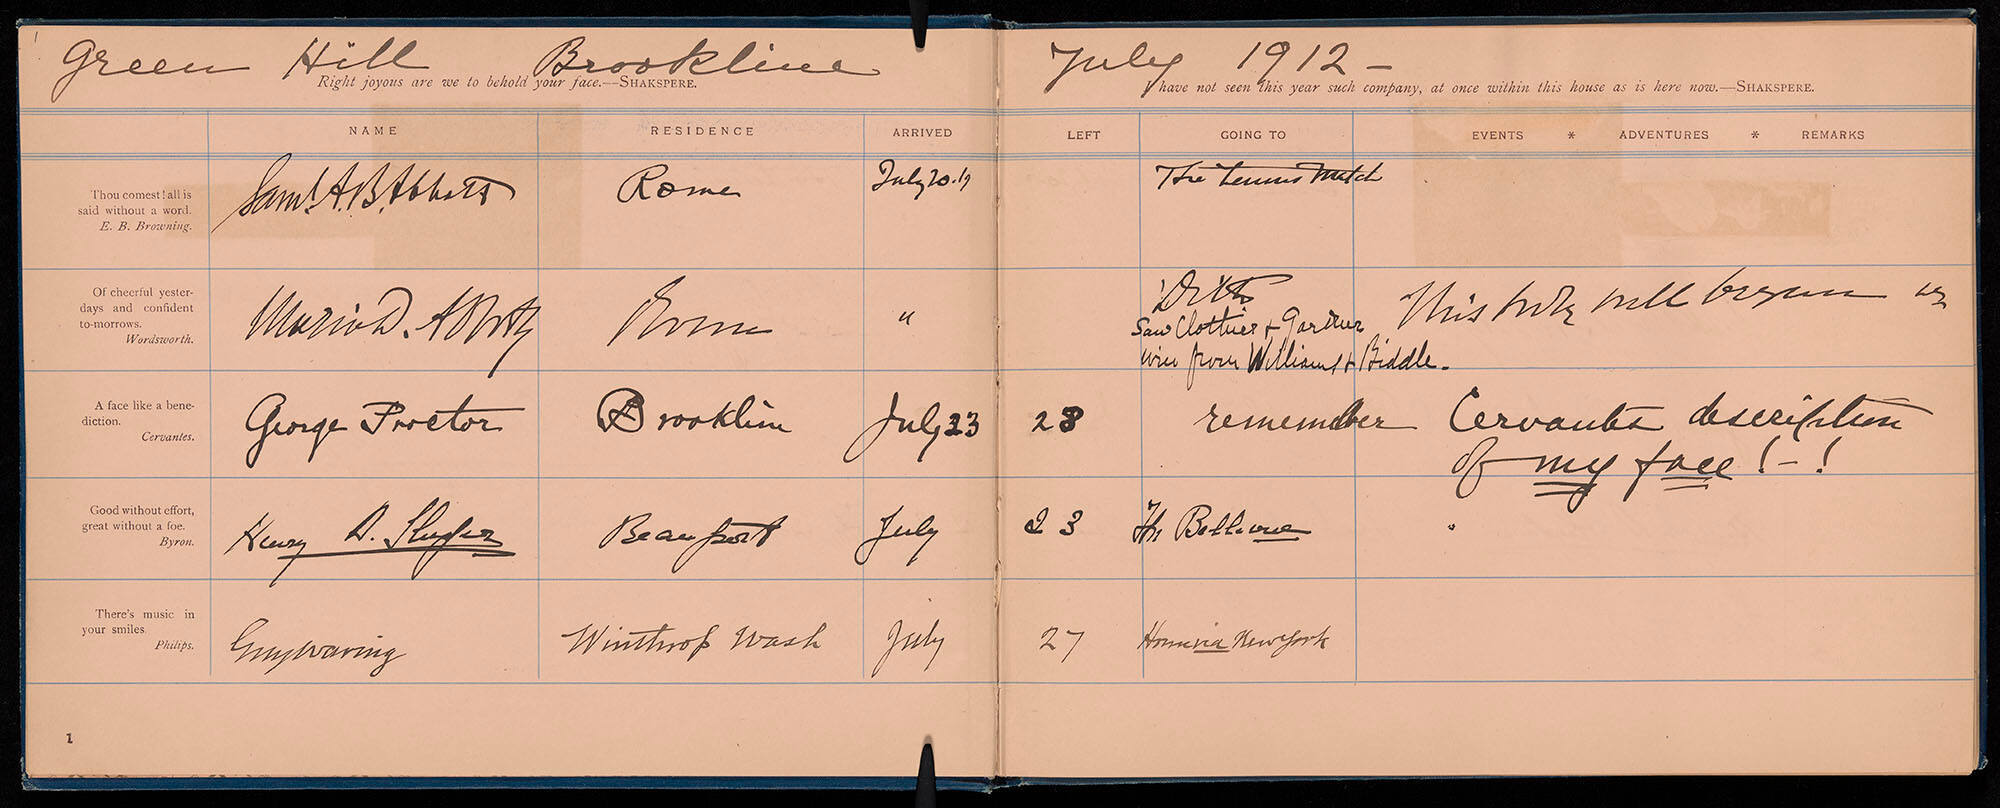 Green Hill Brookline July 1912 -
Right joyous are we to behold your face.—SHAKSPERE.
I have not seen this year such company, at once within this house as is here now.—SHAKSPERE.
NAME RESIDENCE ARRIVED LEFT GOING TO EVENTS * ADVENTURES * REMARKS
Thou comest! all is
said without a word.
E. B. Browning.
Saml. A. B. Abbott Rome July 20. The tennis match
Of cheerful yester-
days and confident
to-morrows.
Wordsworth.
Maria D. Abbott Rome " Ditto
Saw Clothier & Gardner
win from Williams & Biddle.
This
A face like a bene-
diction.
Cervantes.
George Proctor Brookline July 23 28 remember Cervantes description
of my face! - !
Good without effort,
great without a foe.
Byron.
Henry D. Beaufort July 23 The Bellevue "
There's music in
your smiles.
Philips.
Guy Waring Winthrop Wash July 27 Home via New York
1